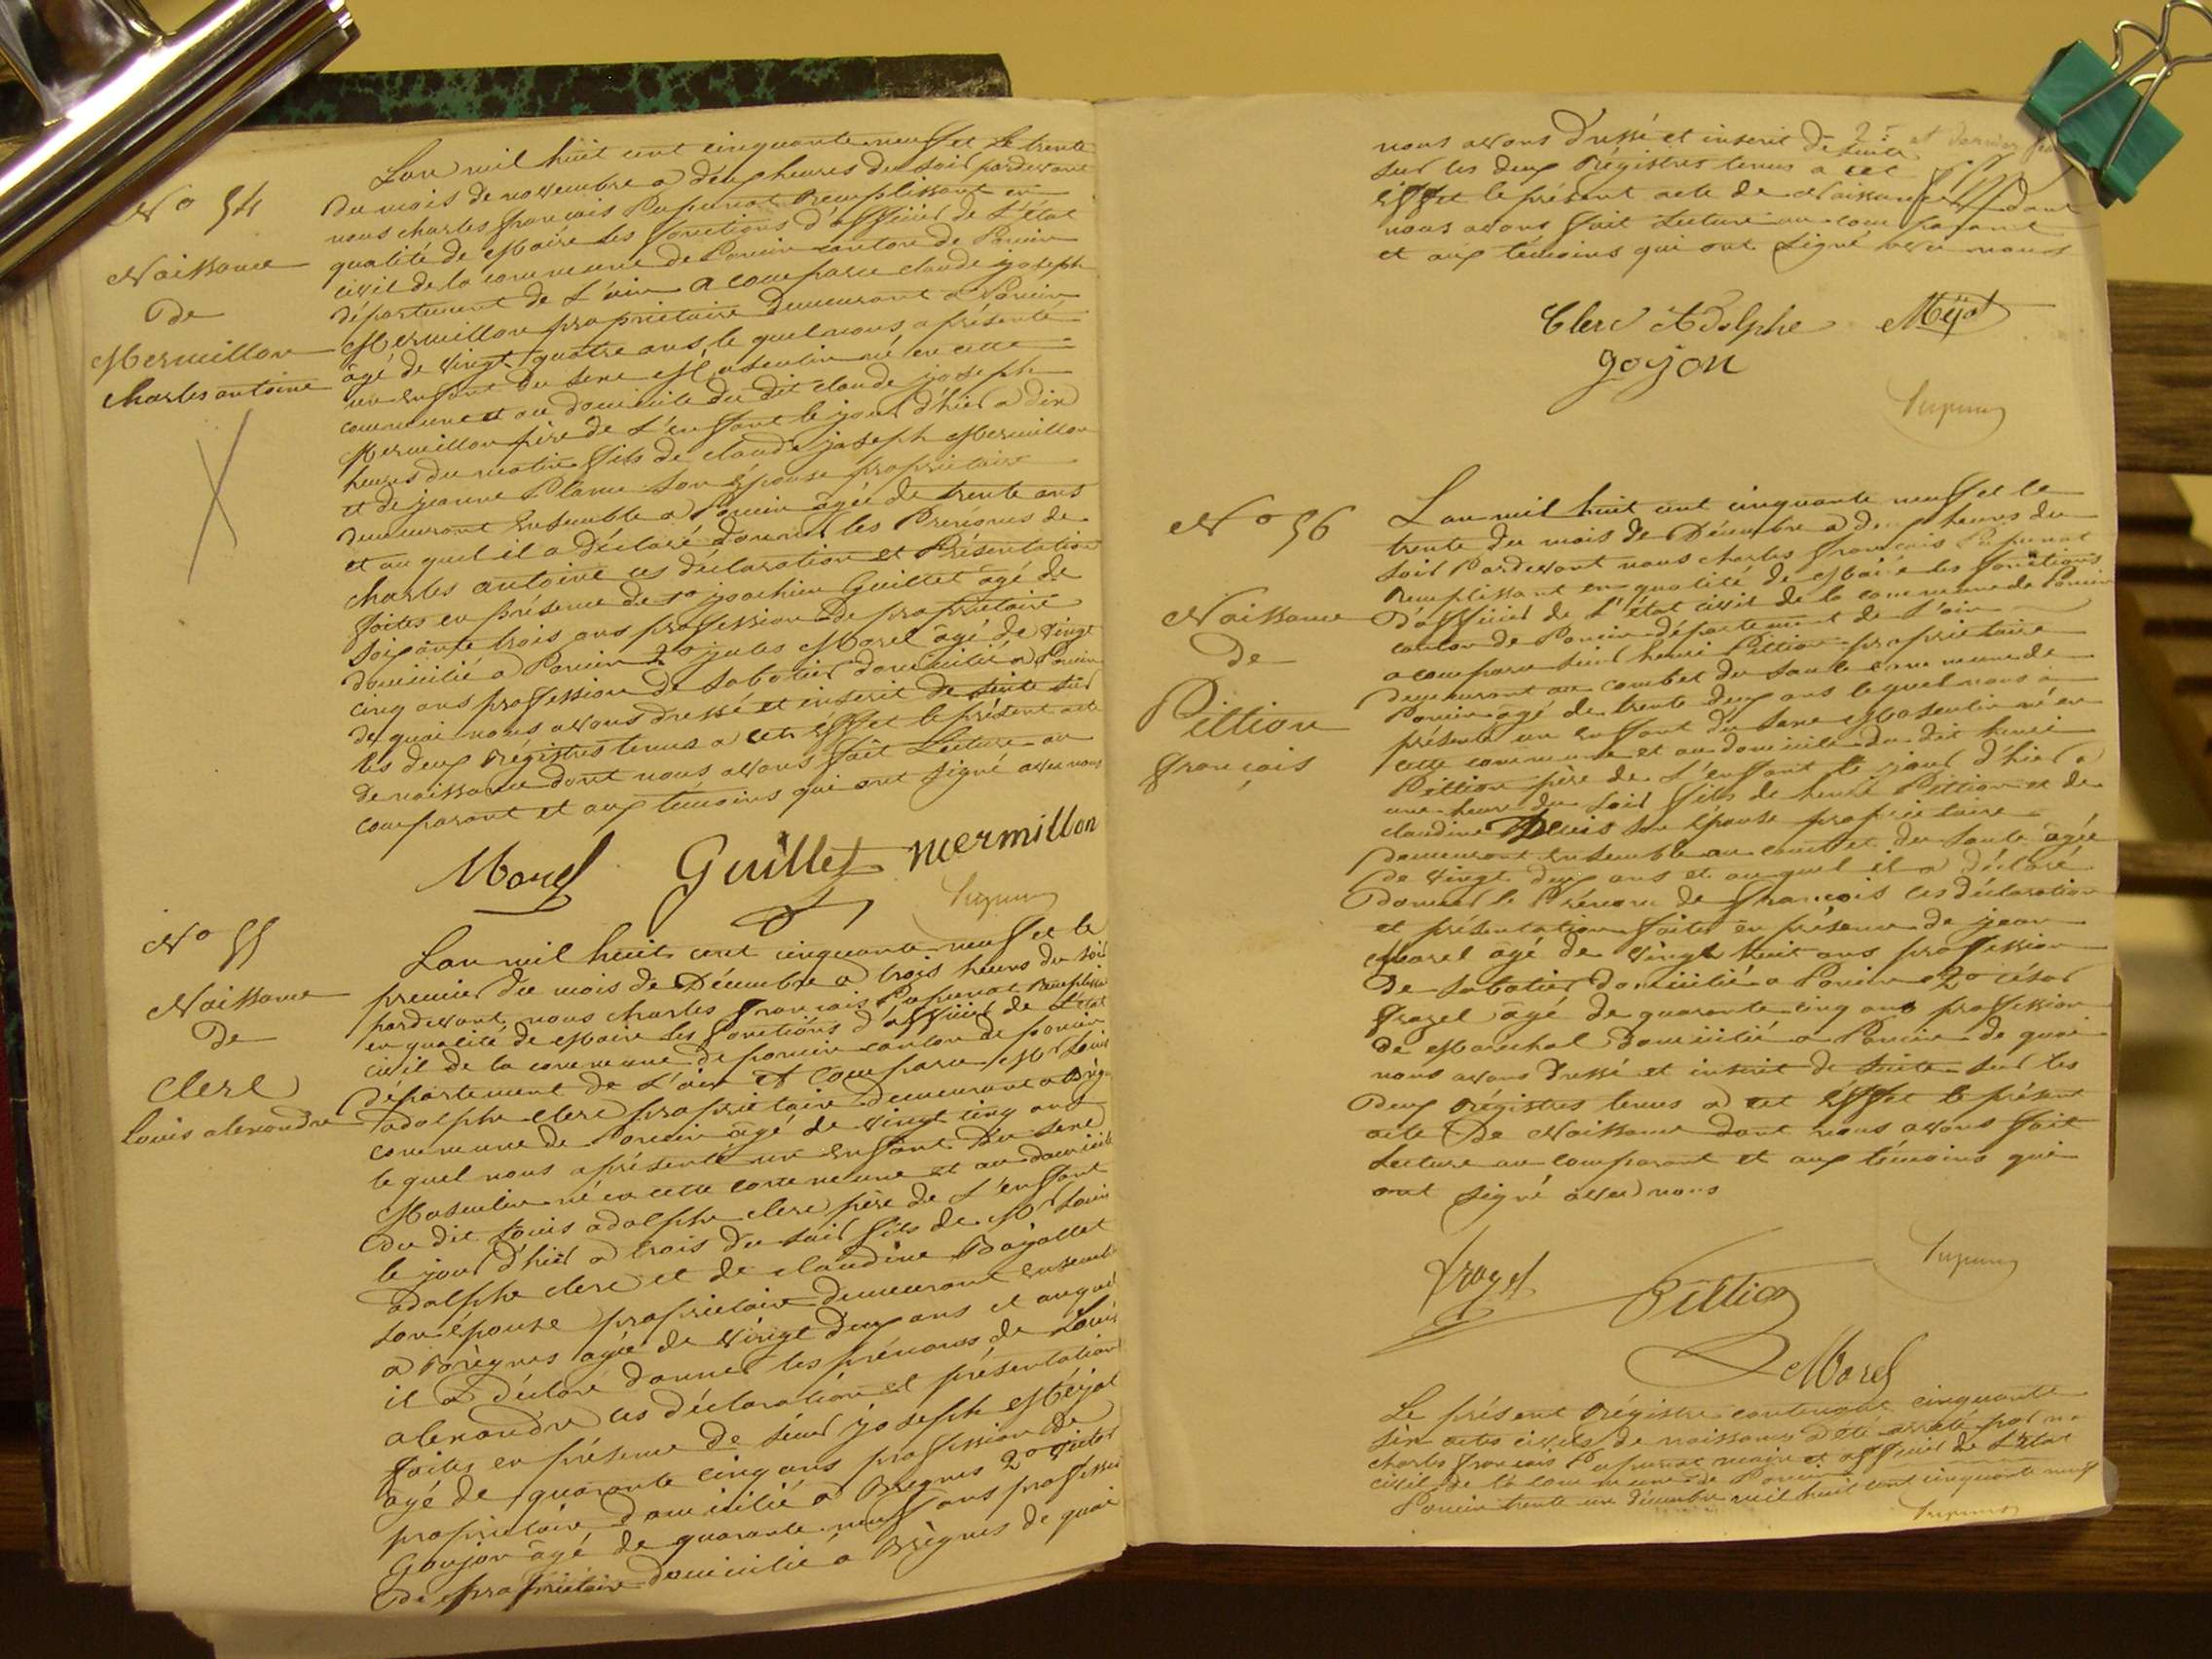 No 54
Naissance
de
Mermillon
charles antoine
Lan mil huit cent cinquante neuf et le trente
du mois de novembre a deux heures du soir pardevant
nous charles françois Pupunat Remplissant en
qualité de Maire les fonctions d'officier de L'état
civil de la commune de Poncin canton de Poncin
département de L'ain a comparu claude joseph
Mermillon propriétaire demeurant a Poncin
âgé de vingt quatre ans le quel nous a présenté
un enfant du sexe Masculin né en cette
commune et au domicile du dit claude joseph
Mermillon père de L'enfant le jour d'hier a dix
heures du matin fils de claude joseph Mermillon
et de jeanne son épouse propriétaire
demeurant ensemble a Poncin âgée de trente ans
et au quel il a déclaré donner les Prénoms de
charles antoine ces déclaration et Présentation
faites en présence de 1o joachim Guillet âgé de
soixante trois ans profession de propriétaire
domicilié a Poncin 2o jules Morel âgé de vingt
cinq ans profession de sabotier domicilié a Poncin
de quoi nous avons dressé et inscrit de suite sur
les deux régistres tenus a cet effet le présent acte
de naissance dont nous avons fait Lecture au
comparant et aux témoins qui ont signé avec nous
Morel Guillet mermillon
No 55
Naissance
de
Clerc
Louis alexandre
Lan mil huit cent cinquante neuf et le
premier du mois de Décembre a trois heures du soir
pardevant nous charles françois Pupunat Remplissant
en qualité de Maire les fonctions d'officier de L'état
civil de la commune de poncin canton de poncin
département de L'ain a comparu Mr Louis
adolphe clerc propriétaire demeurant a
commune de Poncin âgé de vingt cinq ans
le quel nous a présenté un enfant du sexe
Masculin né en cette commune et au domicile
du dit Louis adolphe clerc père de L'enfant
le jour d'hier a trois du soir fils de Mr Louis
adolphe clerc et de claudine
son épouse propriétaire demeurant ensemble
a Brègnes âgée de vingt deux ans et auquel
il a déclaré donner les prénoms de Louis
alexandre ces déclaration et présentation
faites en présence de sieur joseph Méjat
âgé de quarante cinq ans profession de
propriétaire domicilié a Bregnes 2o victor
Goujon âgé de quarante neuf ans profession
de propriétaire domicilié a Brègnes de quoi
2e et dernier
nous avons dressé et inscrit de suite
sur les deux Régistres tenus a cet
effet le présent acte de Naissance dont
nous avons fait Lecture au comparant
et aux témoins qui ont signé avec nous
Clerc Adolphe Méjat
goyon
No 56
Naissance
de
Pittion
françois
Lan mil huit cent cinquante neuf et le
trente du mois de Décembre a deux heures du
soir Pardevant nous charles françois Pupunat
remplissant en qualité de Maire les fonctions
d'officier de L'état civil de la commune de Poncin
canton de Poncin département de L'ain
a comparu sieur henri Pittion propriétaire
demeurant au combet du saule commune de
Poncin âgé de trente deux ans lequel nous a
présenté un enfant du sexe Masculin né en
cette commune et au domicile du dit henri
Pittion père de L'enfant le jour d'hier a
une heure du soir fils de henri Pittion et de
claudine son épouse propriétaire
demeurant ensemble au combet du saule âgée
de vingt deux ans et au quel il a déclaré
donner le Prénom de françois ces déclaration
et présentation faites en présence de jean
Morel âgé de vingt huit ans profession
de sabotier domicilié a Poncin 2o césar
frazel âgé de quarante cinq ans profession
de Maréchal domicilié a Poncin de quoi
nous avons dressé et inscrit de suite sur les
deux régistres tenus a cet effet le présent
acte De Naissance dont nous avons fait
Lecture au comparant et aux témoins qui
ont signé avec nous
Pittion
Morel
Le présent régistre contenant cinquante
six actes civils de naissance a été arrêté par
charles françois Pupunat maire et officier de L'état
civil de la commune de Poncin
Poncin trente un décembre mil huit cent cinquante neuf